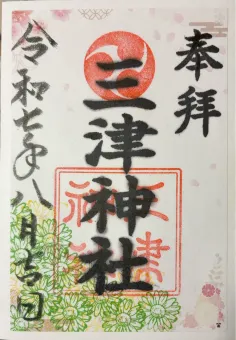 奉拝
三津神社
三津
神社
令和七年八月吉日